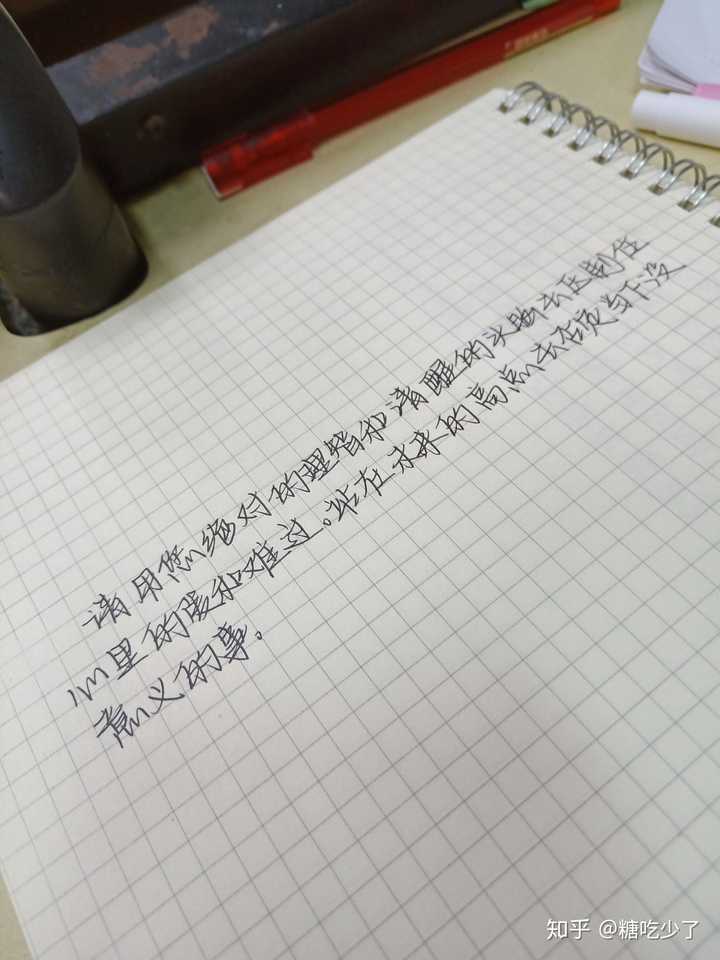 请用您绝对的理智和清醒的头脑去压制住
心里的爱和难过。站在未来的高点去看当下没
意义的事。
知乎 @糖吃少了